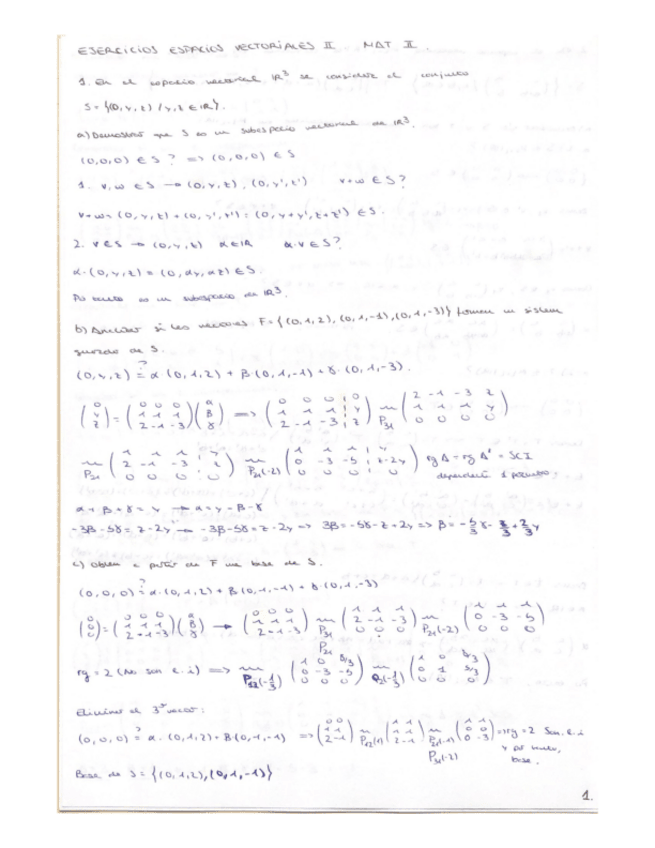 EJERCICIOS ESPACIOS VECTORIALES II MAT II.
1. En el espacio vectorial IR³ se considera el conjunto
S = {(0, y, z) / y, z ∈ IR}.
a) Demostrar que S es un subespacio vectorial de IR³.
(0,0,0) ∈ S ? => (0,0,0) ∈ S
1. v, w ∈ S → (0, y, z), (0, y', z') v+w ∈ S?
v+w = (0, y, z) + (0, y', z') = (0, y+y', z+z') ∈ S.
2. v ∈ S → (0, y, z) α ∈ IR α·v ∈ S?
α·(0, y, z) = (0, αy, αz) ∈ S.
Por tanto es un subespacio de IR³.
b) Estudiar si los vectores F = {(0,1,2), (0,1,-1), (0,1,-3)} forman un sistema
de S.
(0, y, z) ?= α (0,1,2) + β (0,1,-1) + γ (0,1,-3).
(0 y z) = (0 0 0 / 1 1 1 / 2 -1 -3) (α β γ) => (0 0 0 0 / 1 1 1 y / 2 -1 -3 z) ~ P31 (2 -1 -3 z / 1 1 1 y / 0 0 0 0)
~ P21 (1 1 1 y / 2 -1 -3 z / 0 0 0 0) ~ P21(-2) (1 1 1 y / 0 -3 -5 z-2y / 0 0 0 0) rg A = rg A* = SCI
1
α + β + γ = y → α = y - β - γ
-3β - 5γ = z - 2y → -3β - 5γ = z - 2y => 3β = -5γ - z + 2y => β = -5/3 γ - z/3 + 2/3 y
c) Obtén a partir de F una base de S.
(0,0,0) ?= α·(0,1,2) + β (0,1,-1) + γ (0,1,-3)
(0 0 0) = (0 0 0 / 1 1 1 / 2 -1 -3) (α β γ) → (0 0 0 / 1 1 1 / 2 -1 -3) ~ P31 P21 (1 1 1 / 2 -1 -3 / 0 0 0) ~ P21(-2) (1 1 1 / 0 -3 -5 / 0 0 0)
rg = 2 (No son l.i) =>
Eliminar el 3er vector:
(0,0,0) ?= α·(0,1,2) + β (0,1,-1) => (0 0 / 1 1 / 2 -1) ~ P12(1) (1 1 / 1 1 / 2 -1) ~ P21(-1) P31(-2) (1 1 / 0 0 / 0 -3) => rg = 2 Son l.i
y por tanto,
base.
Base de S = {(0,1,2), (0,1,-1)}
1.